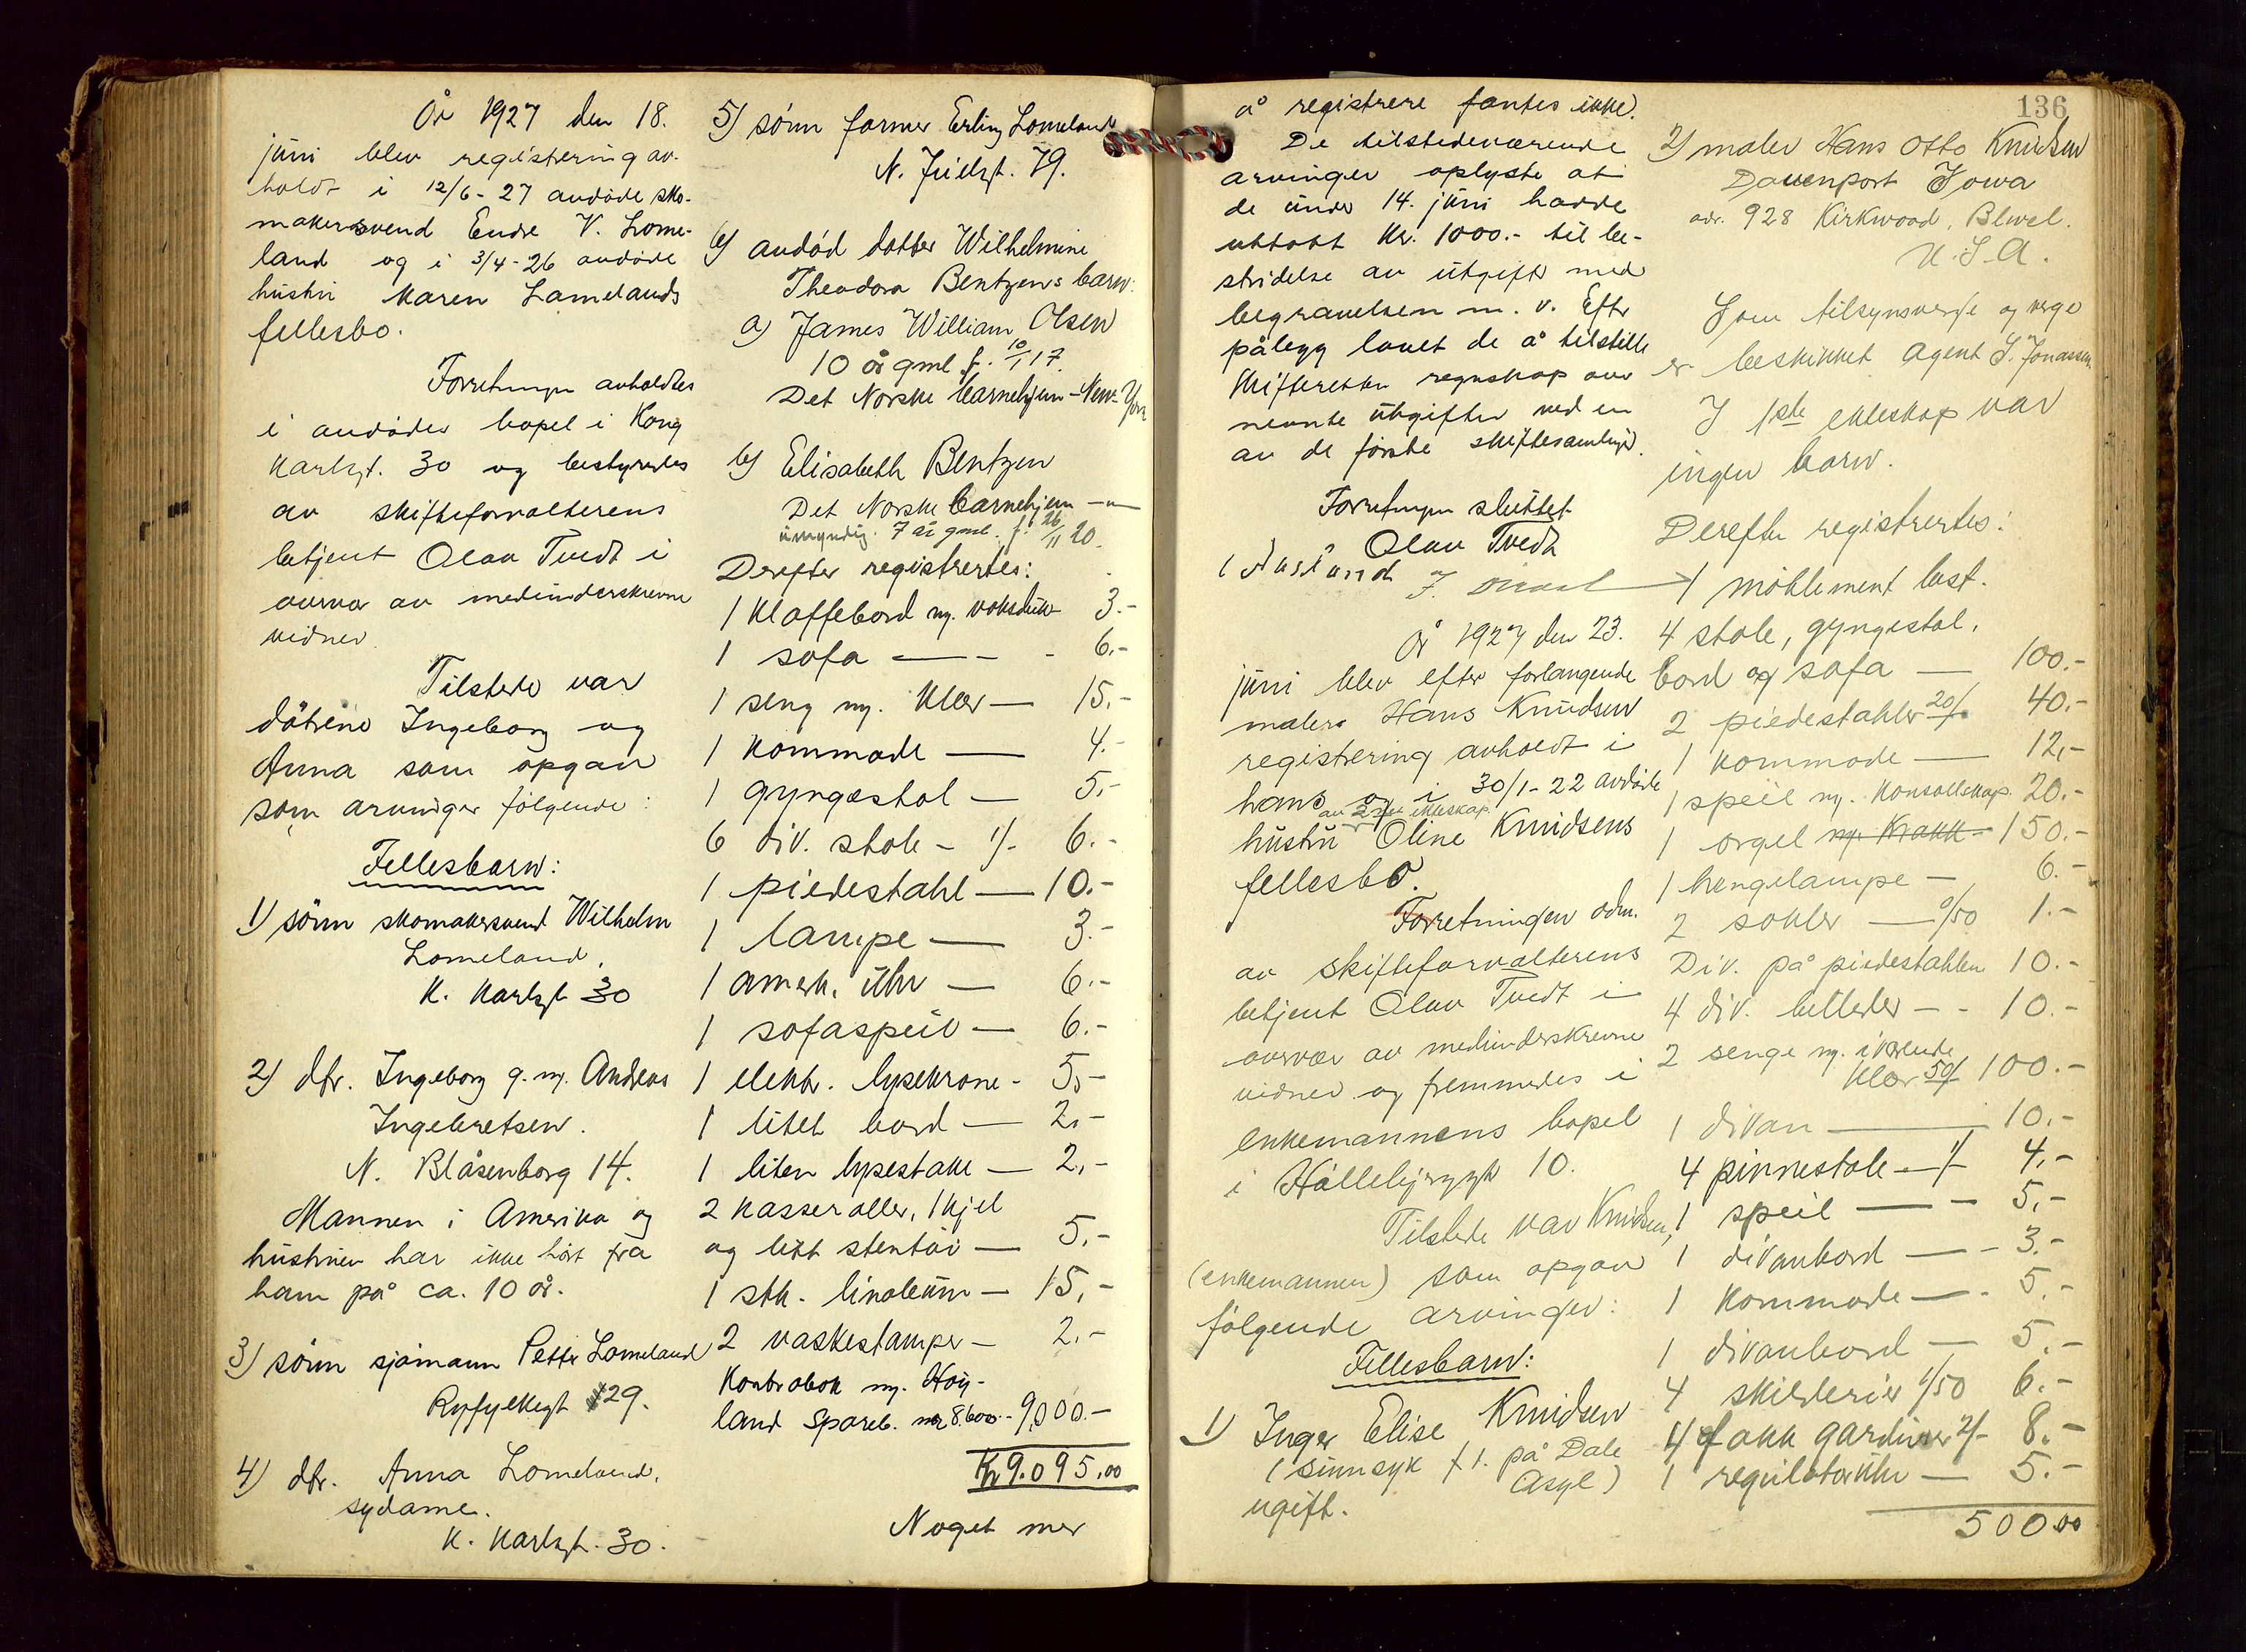 År 1927 den 18.
juni blev registering av-
holdt i 12/6-27 avdøde sko-
makersvend Endre V. Lome-
land og i 3/4-26 avdøde
hustru Maren Lomelands
fellesbo.
Forretningen avholdtes
i avdødes bopel i Kong
Karlsgt. 30 og bestyredes
av skifteforvalterens
betjent Olav Tvedt i
overvær av medunderskrevne
vidner.
Tilstede var
døtrene Ingeborg og
Anna som opgav
som arvinger følgende:
Fellesbarn:
1) sønn skomakersvend Wilhelm
Lomeland.
K. Karlsgt 30
2) dtr. Ingeborg g.m. Andreas
Ingebretsen.
N. Blåsenborg 14.
Mannen i Amerika og
hustruen har ikke hørt fra
ham på ca. 10 år.
3) sønn sjømann Petter Lomeland
Ryfylkegt 29.
4) dtr. Anna Lomeland,
sydame.
K. Karlsgt. 30.
5) sønn former Erling Lomeland
N. Juelsgt. 79.
6) avdød datter Wilhelmine
Theodora Bentzens barn:
a) James William Olsen
10 år gml f. 10/1 17.
Det Norske barnehjem - New York
b) Elisabeth Bentzen
Det Norske barnehjem — " —
umyndig. 7 år gml. f. 26/11 20.
Derefter registrertes:
1 klaffebord m. voksduk 3.-
1 sofa — - - 6.-
1 seng m. klær — 15.-
1 kommode — 4.-
1 gyngestol — 5.-
6 div. stole - 1/- 6.-
1 piedestahl — 10.-
1 lampe — 3.-
1 amerk. uhr — 6.-
1 sofaspeil — 6.-
1 elektr. lysekrone - 5.-
1 litet bord — 2.-
1 liten lysestake — 2.-
2 kasseroller, 1 kjel
og litt stentøi — 5.-
1 stk. linoleum — 15.-
2 vaskestamper — 2.-
Kontrabok m. Høy-
land Spareb. nr 8600.- 9000.-
Kr 9.095.00
Noget mer
136
å registrere fantes ikke.
De tilstedeværende
arvinger oplyste at
de under 14. juni hadde
uttatt kr. 1000.- til be-
stridelse av utgifter med
begravelsen m. v. Efter
pålegg lovet de å tilstille
skifteretten regnskap over
nevnte utgifter ved en
av de første skiftesamlinger.
Forretningen sluttet
Olav Tvedt
År 1927 den 23.
juni blev efter forlangende
maler Hans Knudsen
registrering avholdt i
hans og i 30/1-22 avdøde
av 2net ekteskap
hustru Oline Knudsens
fellesbo.
Forretningen adm.
av skifteforvalterens
betjent Olav Tvedt i
overvær av medunderskrevne
vidner og fremmedes i
enkemannens bopel
i 10.
Tilstede var Knudsen,
(enkemannen) som opgav
følgende arvinger:
Fellesbarn:
1) Inger Elise Knudsen
(sinnsyk f. t. på Dale
Asyl)
ugift.
2) maler Hans Otto Knudsen
Davenport Iowa
adr. 928 Kirkwood, Blvd.
U.S.A.
Som tilsynsverge og verge
er beskikket agent S. Jonassen
I 1ste ekteskap var
ingen barn.
Derefter registrertes:
1 møblement best.
4 stole, gyngestol,
bord og sofa — 100.-
2 piedestahler 20/- 40.-
1 kommode — 12.-
1 speil m. konsollskap. 20.-
1 orgel m. krakk 150.-
1 hengelampe — 6.-
2 sokler — 0/50 1.-
Div. på piedestahlen 10.-
4 div. billeder - - 10.-
2 senge m. iværende
klær 50/- 100.-
1 divan — 10.-
4 pinnestole - 1/- 4.-
1 speil — - 5.-
1 divanbord — - 3.-
1 kommode — - 5.-
1 divanbord — 5.-
4 skilderier 1/50 6.-
4 fakk gardiner 2/- 8.-
1 regulatoruhr — 5.-
500.00